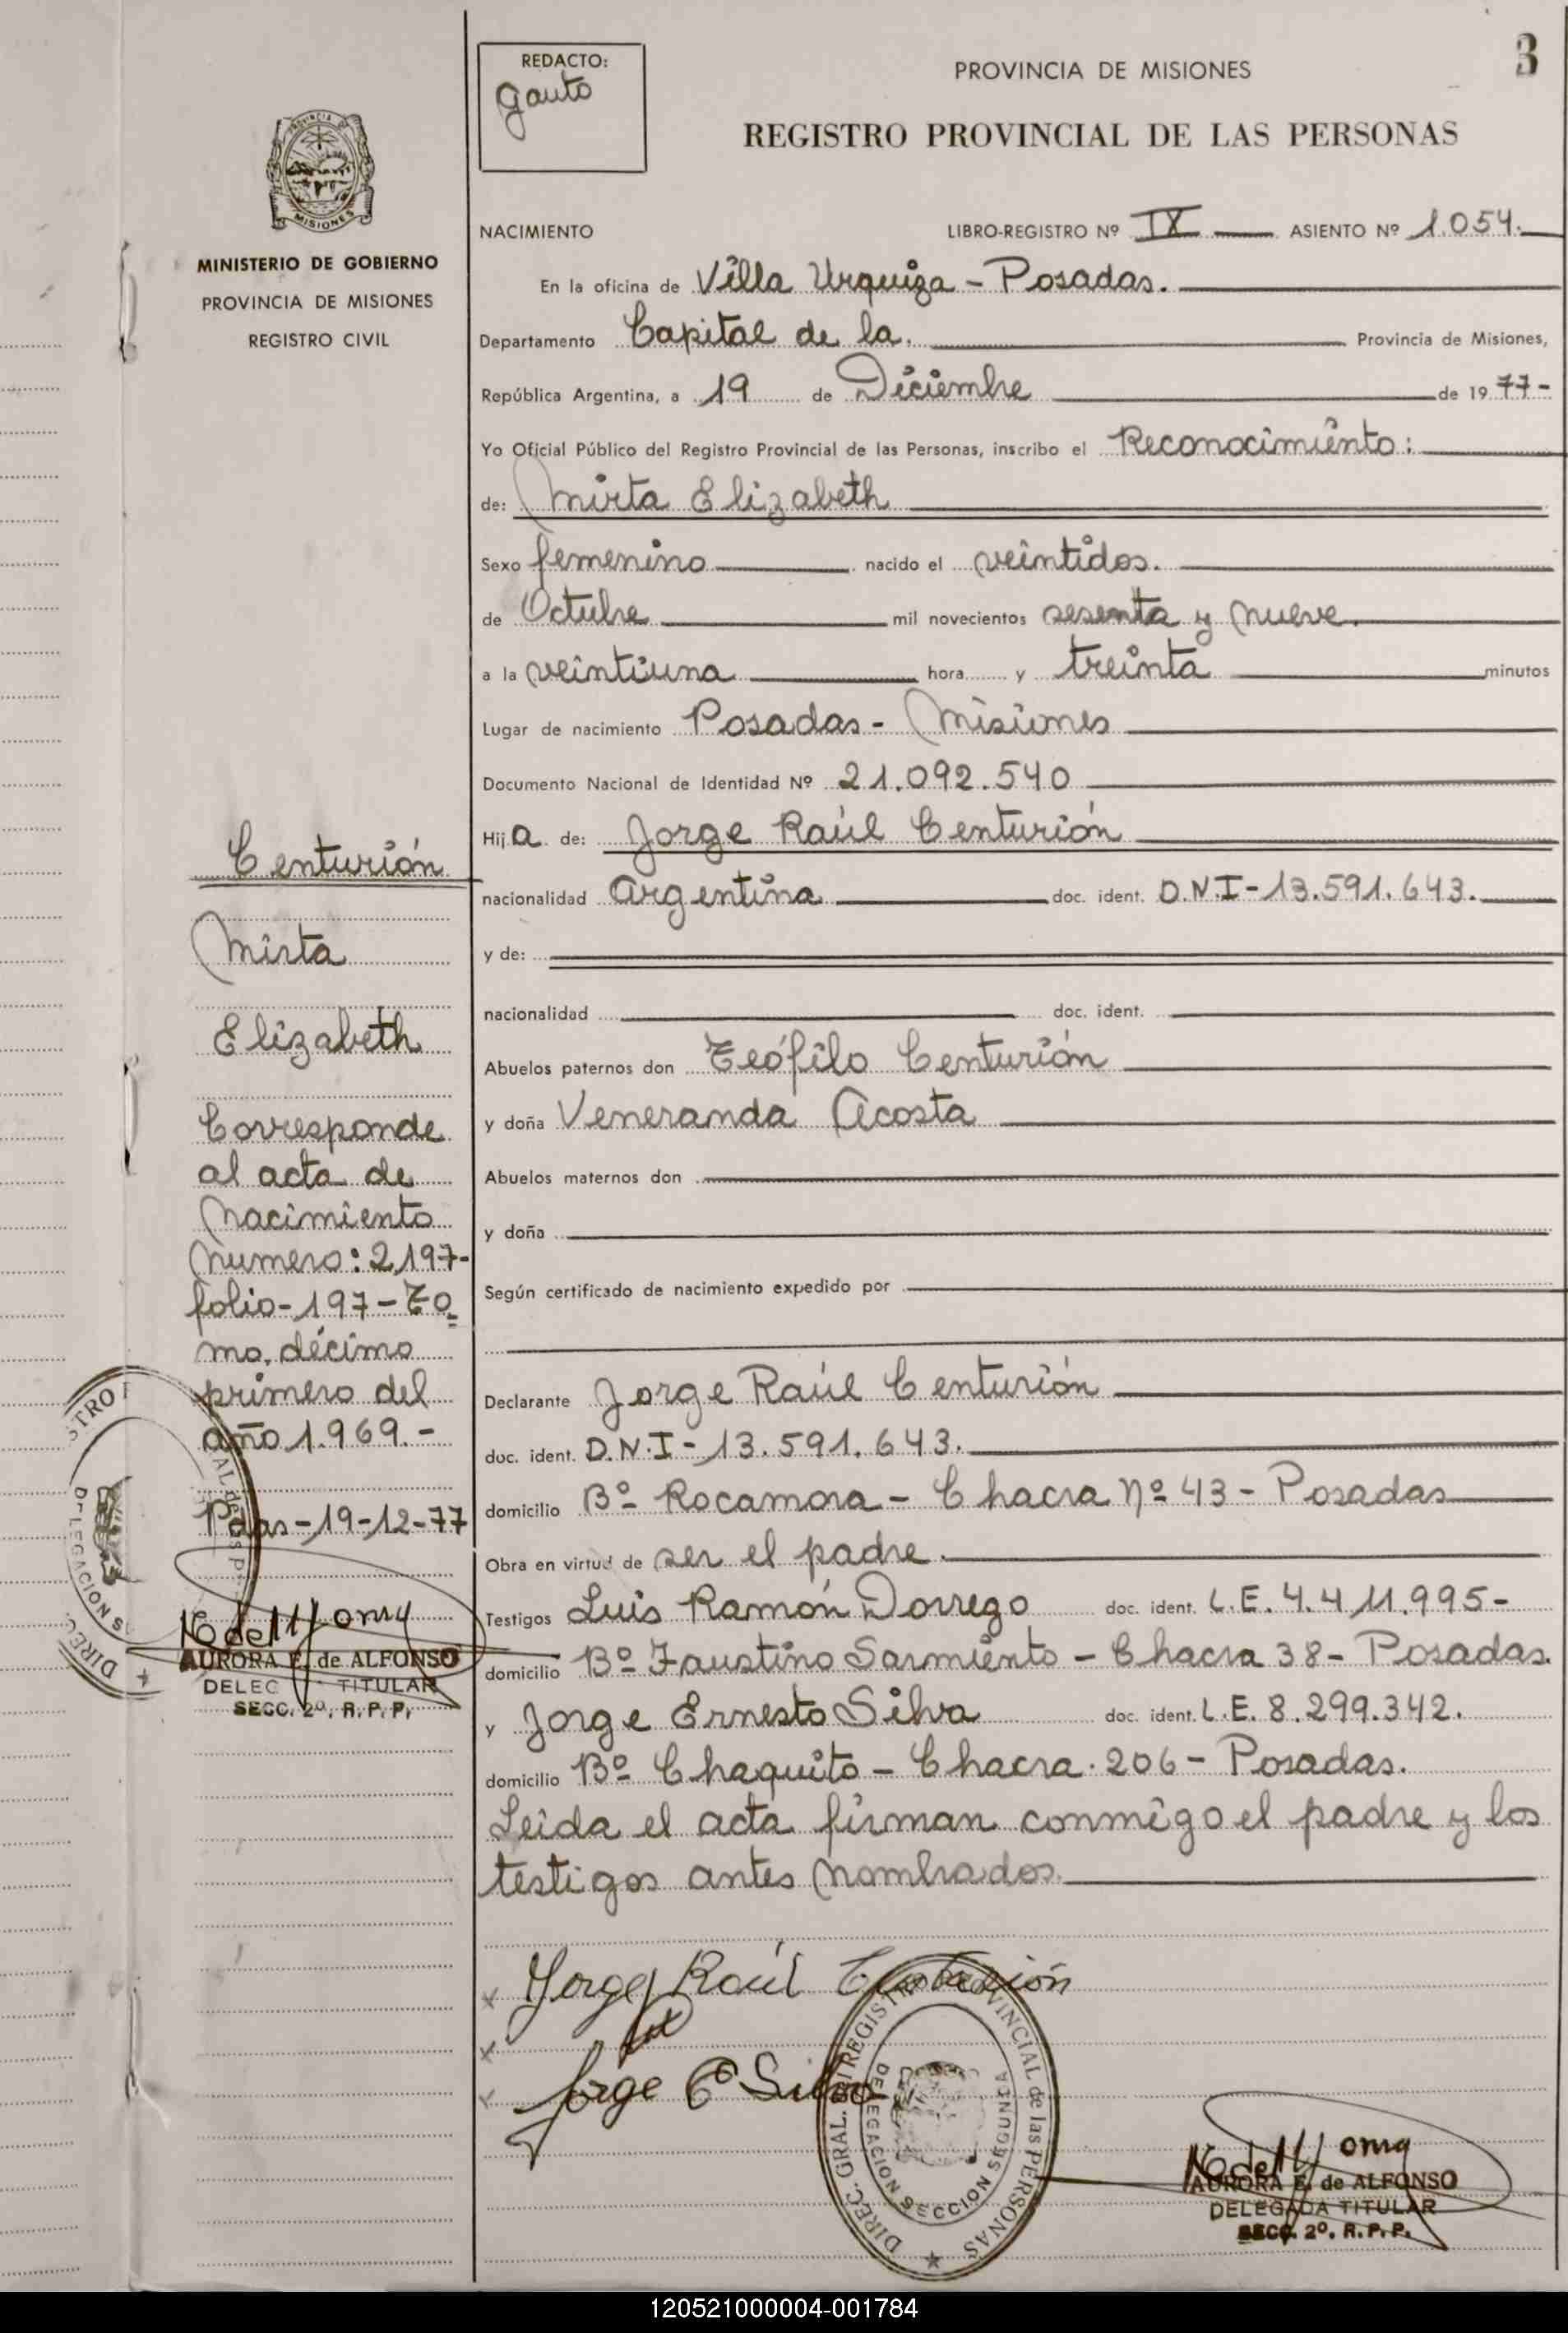 3
REDACTO:
Gauto
PROVINCIA DE MISIONES
REGISTRO PROVINCIAL DE LAS PERSONAS
PROVINCIA DE
MISIONES
MINISTERIO DE GOBIERNO
PROVINCIA DE MISIONES
REGISTRO CIVIL
NACIMIENTO LIBRO-REGISTRO Nº IX ASIENTO Nº 1.054.
En la oficina de Villa Urquiza - Posadas.
Departamento Capital de la. Provincia de Misiones,
República Argentina, a 19 de Diciembre de 1977-
Yo Oficial Público del Registro Provincial de las Personas, inscribo el Reconocimiento:
de: Mirta Elizabeth
Sexo femenino nacido el veintidos.
de Octubre mil novecientos sesenta y nueve.
a la veintiuna hora y treinta minutos
Lugar de nacimiento Posadas - Misiones
Documento Nacional de Identidad Nº 21.092.540
Hija de: Jorge Raúl Centurión
nacionalidad Argentina doc. ident. D.N.I-13.591.643.
y de:
nacionalidad doc. ident.
Abuelos paternos don Teófilo Centurión
y doña Veneranda Acosta
Abuelos maternos don
y doña
Según certificado de nacimiento expedido por
Declarante Jorge Raúl Centurión
doc. ident. D.N.I-13.591.643.
domicilio Bº Rocamora - Chacra Nº 43 - Posadas
Obra en virtud de ser el padre.
Testigos Luis Ramón Dorrego doc. ident. L.E. 4.411.995-
domicilio Bº Faustino Sarmiento - Chacra 38 - Posadas.
y Jorge Ernesto Silva doc. ident. L.E. 8.299.342.
domicilio Bº Chaquito - Chacra. 206 - Posadas.
Leida el acta firman conmigo el padre y los
testigos antes nombrados.
Centurión
Mirta
Elizabeth
Corresponde
al acta de
Nacimiento
Numero: 2,197-
folio-197-To
mo, décimo
primero del
año 1.969.-
Pdas-19-12-77
AURORA E. de ALFONSO
DELEG TITULAR
SECC. 2º. R. P. P.
Jorge Raúl Centurión
Jorge E Silva
DIREC. GRAL. del REGISTRO PROVINCIAL de las PERSONAS
DELEGACION SECCION SEGUNDA
AURORA E. de ALFONSO
DELEGADA TITULAR
SECC. 2º. R. P. P.
120521000004-001784